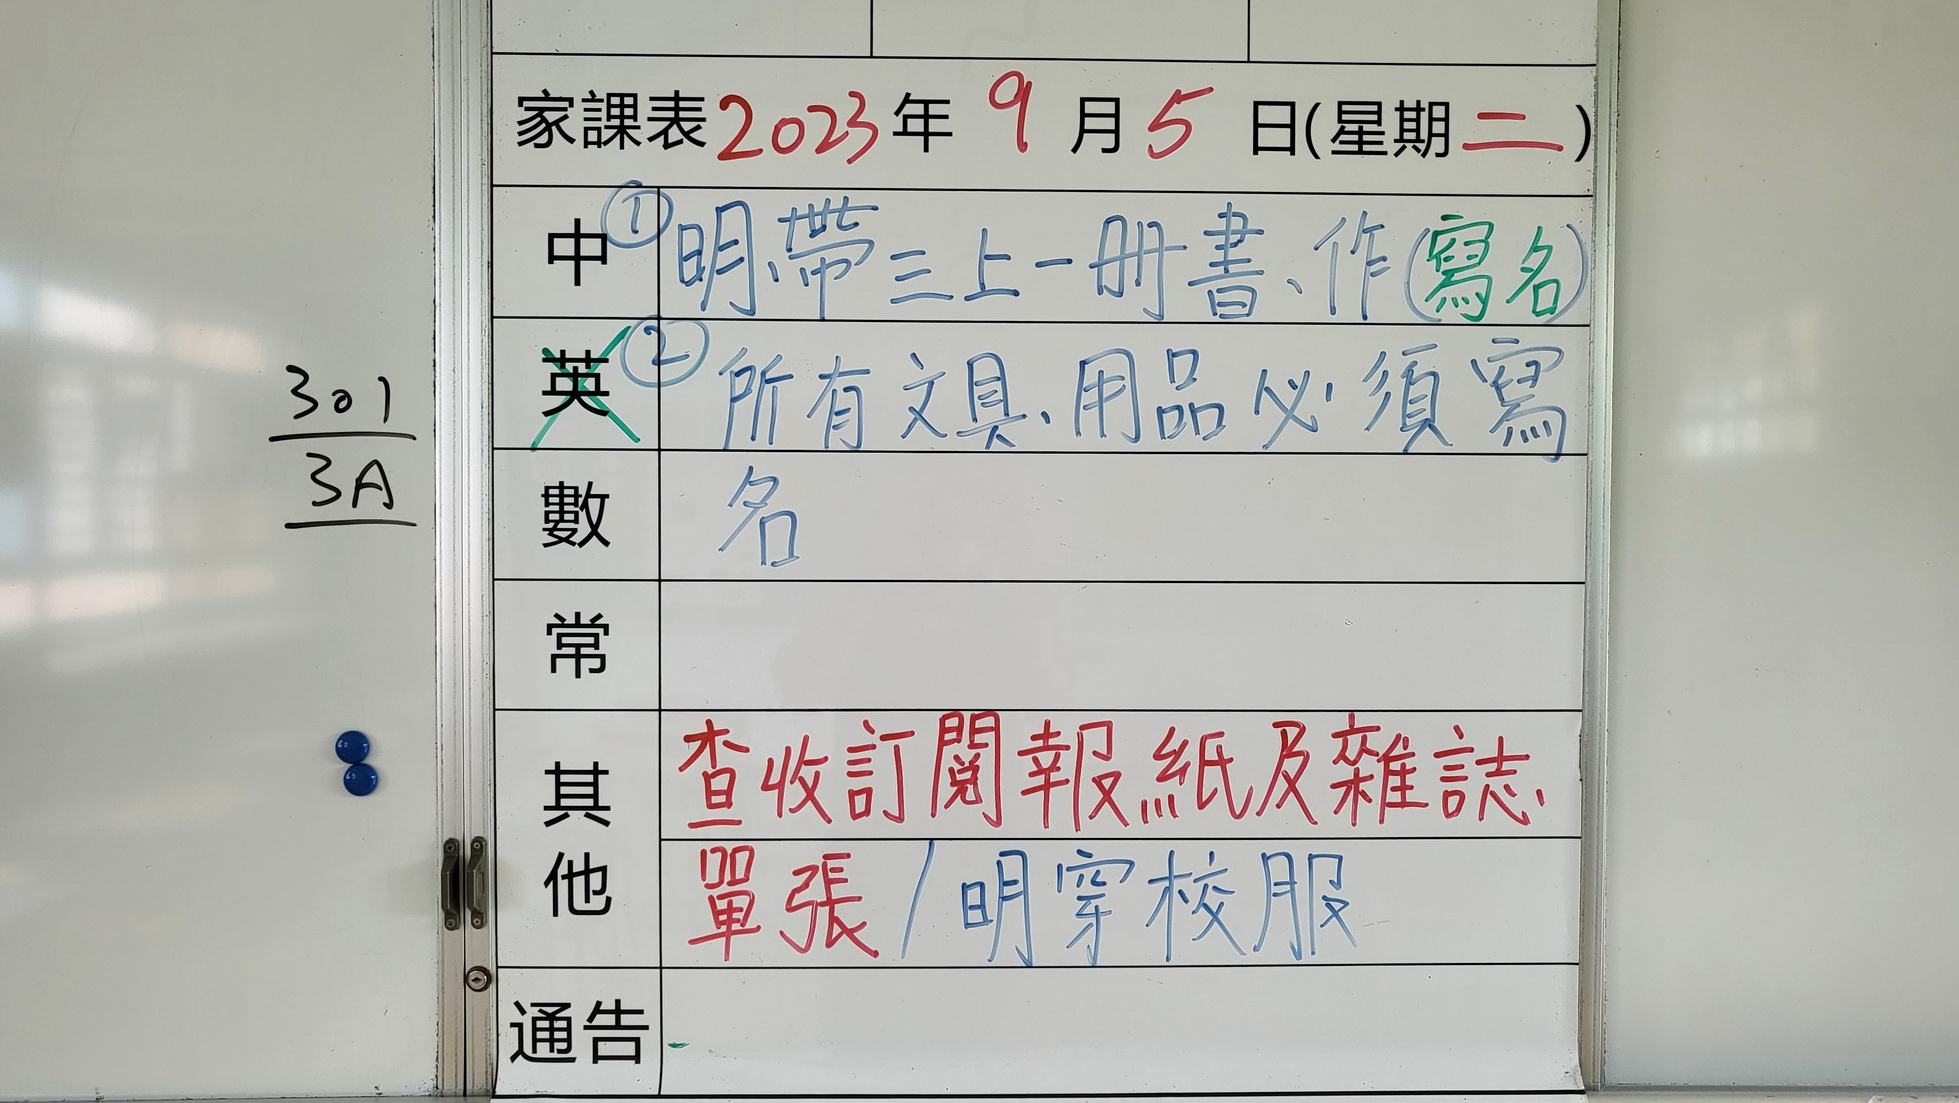 家課表2023年 9月5日(星期二)
中 ①明帶三上一冊書、作(寫名)
英 ②所有文具、用品必須寫
數 名
常
其他 查收訂閱報紙及雜誌
單張/明穿校服
通告
301
3A